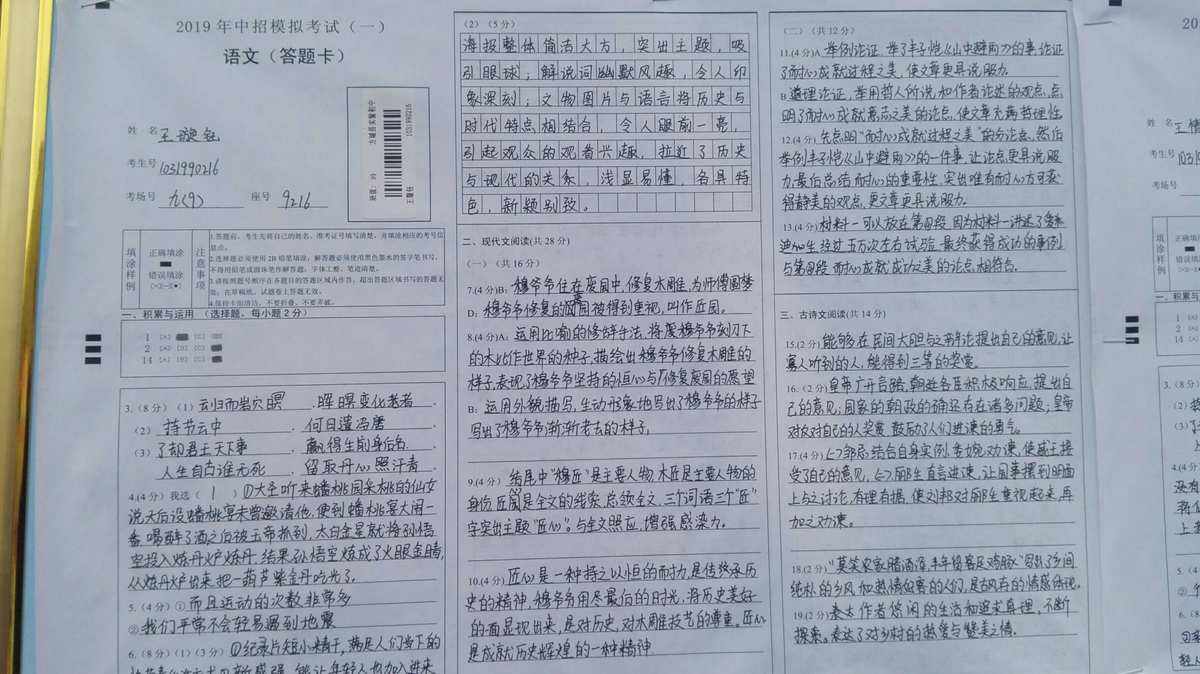 2019年中招模拟考试(一)
语文(答题卡)
姓 名
考生号 1031990216
考场号 九(9) 座号 9216
方城县实验初中
1031990216
填涂样例
正确填涂
错误填涂
注意事项
1.答题前,考生先将自己的姓名、准考证号填写清楚,并填涂相应的考号信息点。
2.选择题必须使用2B铅笔填涂,解答题必须使用黑色墨水的签字笔书写,不得用铅笔或圆珠笔作解答题,字体工整,笔迹清楚。
3.请按照题号顺序在各题目的答题区域内作答,超出答题区域书写的答案无效;在草稿纸、试题卷上答题无效。
4.保持卡面清洁,不要折叠、不要弄破。
一、积累与运用 (选择题,每小题2分)
1 [A] [C] [D]
2 [A] [B] [C]
14 [A] [B] [C]
3.(8分)(1) 云归而岩穴暝 . 晦暝变化者者 .
(2) 持节云中 . 何日遣冯唐 .
(3) 了却君王天下事 . 赢得生前身后名 .
人生自古谁无死 . 留取丹心照汗青 .
4.(4分)我选( 1 )①大圣听来蟠桃园采桃的仙女
说天后设蟠桃宴未曾邀请他,便到蟠桃宴大闹一
番,喝醉了酒之后被玉帝抓到,太白金星就将孙悟
空投入炼丹炉炼丹,结果孙悟空炼成了火眼金睛,
从炼丹炉出来把一葫芦紫金丹吃光了。
5.(4分)①而且运动的次数非常多
②我们平常不会轻易遇到地震
6.(8分)(1)(3分)①纪录片短小精干,满足人们当下的
(2)(5分)
海报整体简洁大方,突出主题,吸
引眼球;解说词幽默风趣,令人印
象深刻;文物图片与语言将历史与
时代特点相结合,令人眼前一亮,
引起观众的观看兴趣,拉近了历史
与现代的关系,浅显易懂,各具特
色,新颖别致。
二、现代文阅读(共28分)
(一)(共16分)
7.(4分)B: 穆爷爷住在废园中,修复木雕,为师傅圆梦
D: 穆爷爷修复的园被得到重视,叫作匠园。
8.(4分)A: 运用比喻的修辞手法,将穆爷爷刻刀下
的木比作世界的种子,描绘出穆爷爷修复木雕的
样子,表现了穆爷爷坚持的恒心与修复废园的愿望
B: 运用外貌描写,生动形象地写出了穆爷爷的样子
写出了穆爷爷渐渐老去的样子,
9.(4分) 结尾中“穆匠”是主要人物,木匠是主要人物的
身份,匠园是全文的线索,总领全文,三个词语三个“匠”
字突出主题“匠心”。与全文照应,增强感染力。
10.(4分) 匠心是一种持之以恒的耐力,是传承历
史的精神,穆爷爷用尽最后的时光,将历史美好
的一面显现出来,是对历史,对木雕技艺的尊重。匠心
是成就历史辉煌的一种精神
(二)(共12分)
11.(4分)A 举例论证,举了丰子恺《山中避雨》的事,论证
了耐心成就过程之美,使文章更具说服力。
B 道理论证,举用哲人所说,和作者论述的观点,点
明了耐心成就意志之美的论点,使文章充满哲理性。
12.(4分) 先点明“耐心成就过程之美”的分论点,然后
举例丰子恺《山中避雨》的一件事,让论点更具说服
力,最后总结耐心的重要性,突出唯有耐心方可获
得静美的观点,更文章更具说服力。
13.(4分)材料一可以放在第四段,因为材料一讲述了爱迪
迪生经过五万次左右试验,最终获得成功的事例
与第四段耐心成就成功之美的论点,相符合。
三、古诗文阅读(共14分)
15.(2分) 能够在民间大胆与之辩论提出自己的意见,让
寡人听到的人,能得到三等的奖赏。
16.(2分) 皇帝广开言路,朝廷各臣积极响应,提出自
己的意见;国家的朝政的确还存在诸多问题;皇帝
对反对自己的人奖赏,鼓励了人们进谏的勇气。
17.(4分)(上)邹忌结合自身实例,委婉劝谏,使威王接
受了自己的意见,(乙)郦生直言进谏,让国事摆到明面
上与之讨论,有理有据,使刘邦对郦生重视起来,再
加之劝谏。
18.(2分) “莫笑农家腊酒浑,丰年留客足鸡豚”
纯朴的乡风和热情好客的人们,是固有的情感体现。
19.(2分) 表达作者悠闲的生活和追求真理,不断
探索,表达了对乡村的热爱与赞美之情。